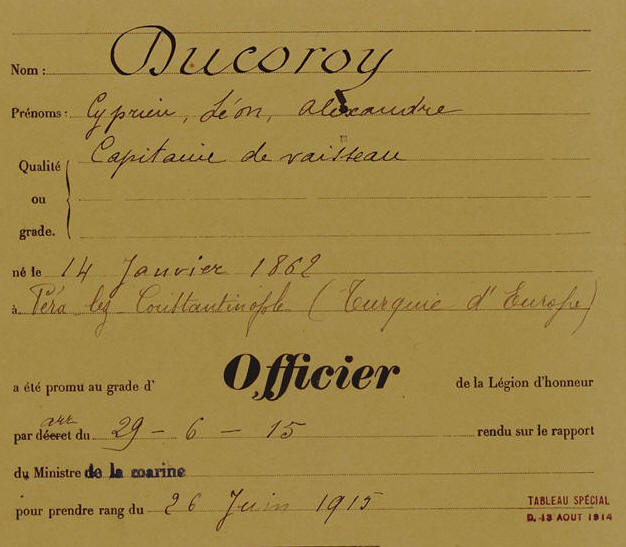 Nom : Ducoroy
Prénoms : Cyprien, Léon, Alexandre
Capitaine de vaisseau
Qualité
ou
grade.
né le 14 Janvier 1862
à Péra lez Constantinople (Turquie d'Europe)
a été promu au grade d' Officier de la Légion d'honneur
arr
par décret du 29 - 6 - 15 rendu sur le rapport
du Ministre de la marine
pour prendre rang du 26 Juin 1915
TABLEAU SPÉCIAL
D. 13 AOUT 1914